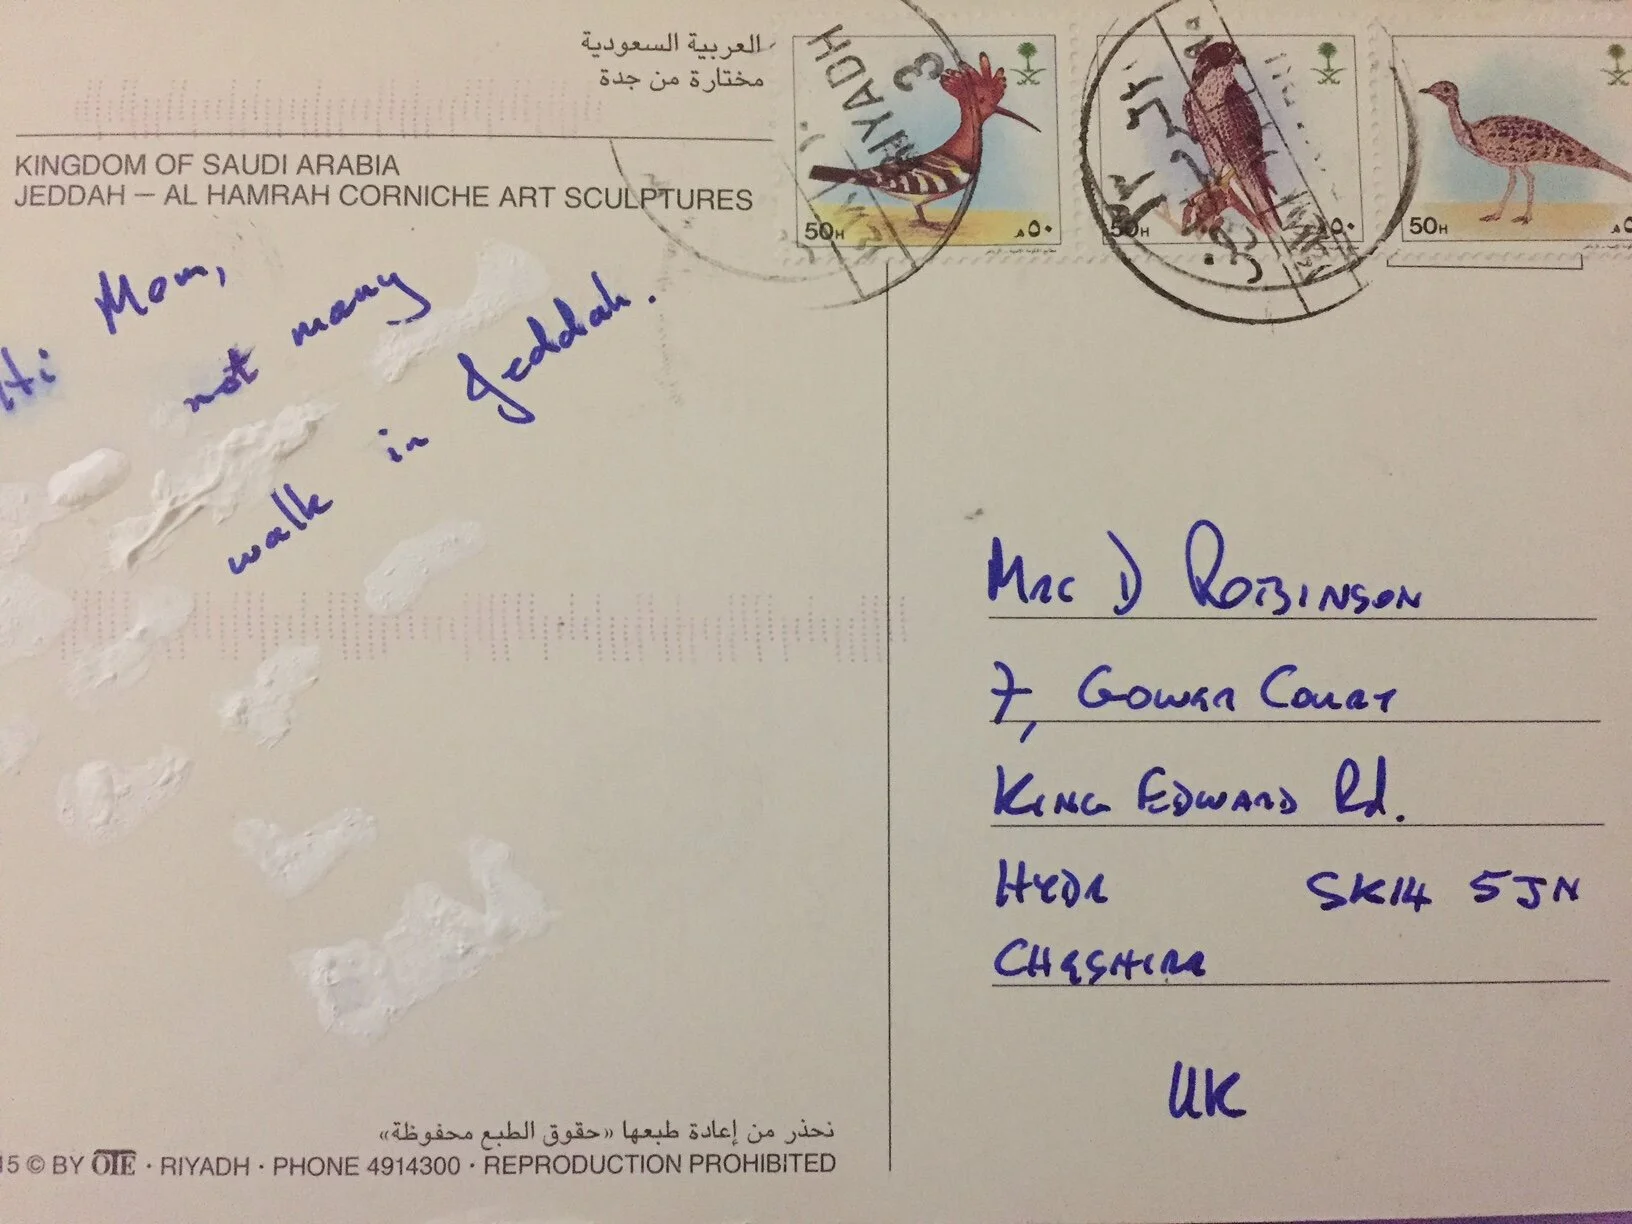 العربية السعودية
مختارة من جدة
KINGDOM OF SAUDI ARABIA
JEDDAH – AL HAMRAH CORNICHE ART SCULPTURES
RIYADH
3
50H ٥٠ هـ
50H ٥٠
50H
Hi Mom,
not many
walk in Jeddah.
Mrs D ROBINSON
7, GOWER COURT
KING EDWARD Rd.
HYDE SK14 5JN
CHESHIRE
UK
نحذر من إعادة طبعها «حقوق الطبع محفوظة»
15 © BY OTE · RIYADH · PHONE 4914300 · REPRODUCTION PROHIBITED